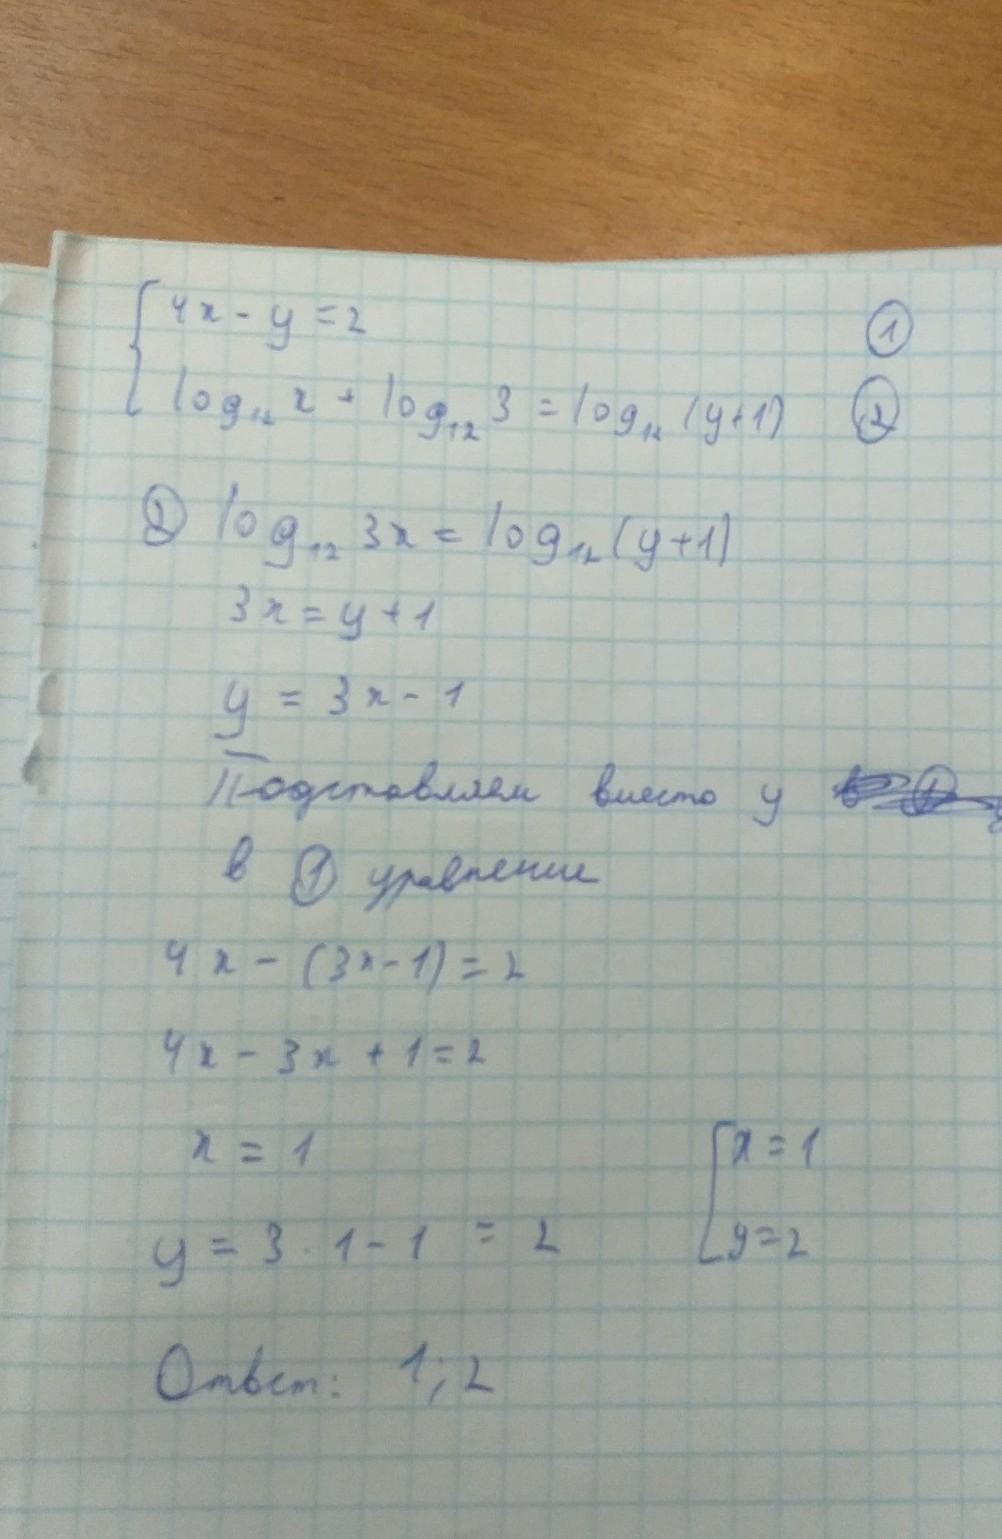 4x - y = 2 ①
log₁₂ x + log₁₂ 3 = log₁₂ (y+1) ②
② log₁₂ 3x = log₁₂ (y+1)
3x = y + 1
y = 3x - 1
Подставляем вместо y
в ① уравнение
4x - (3x-1) = 2
4x - 3x + 1 = 2
x = 1
x = 1
y = 3 · 1 - 1 = 2
y = 2
Ответ: 1; 2